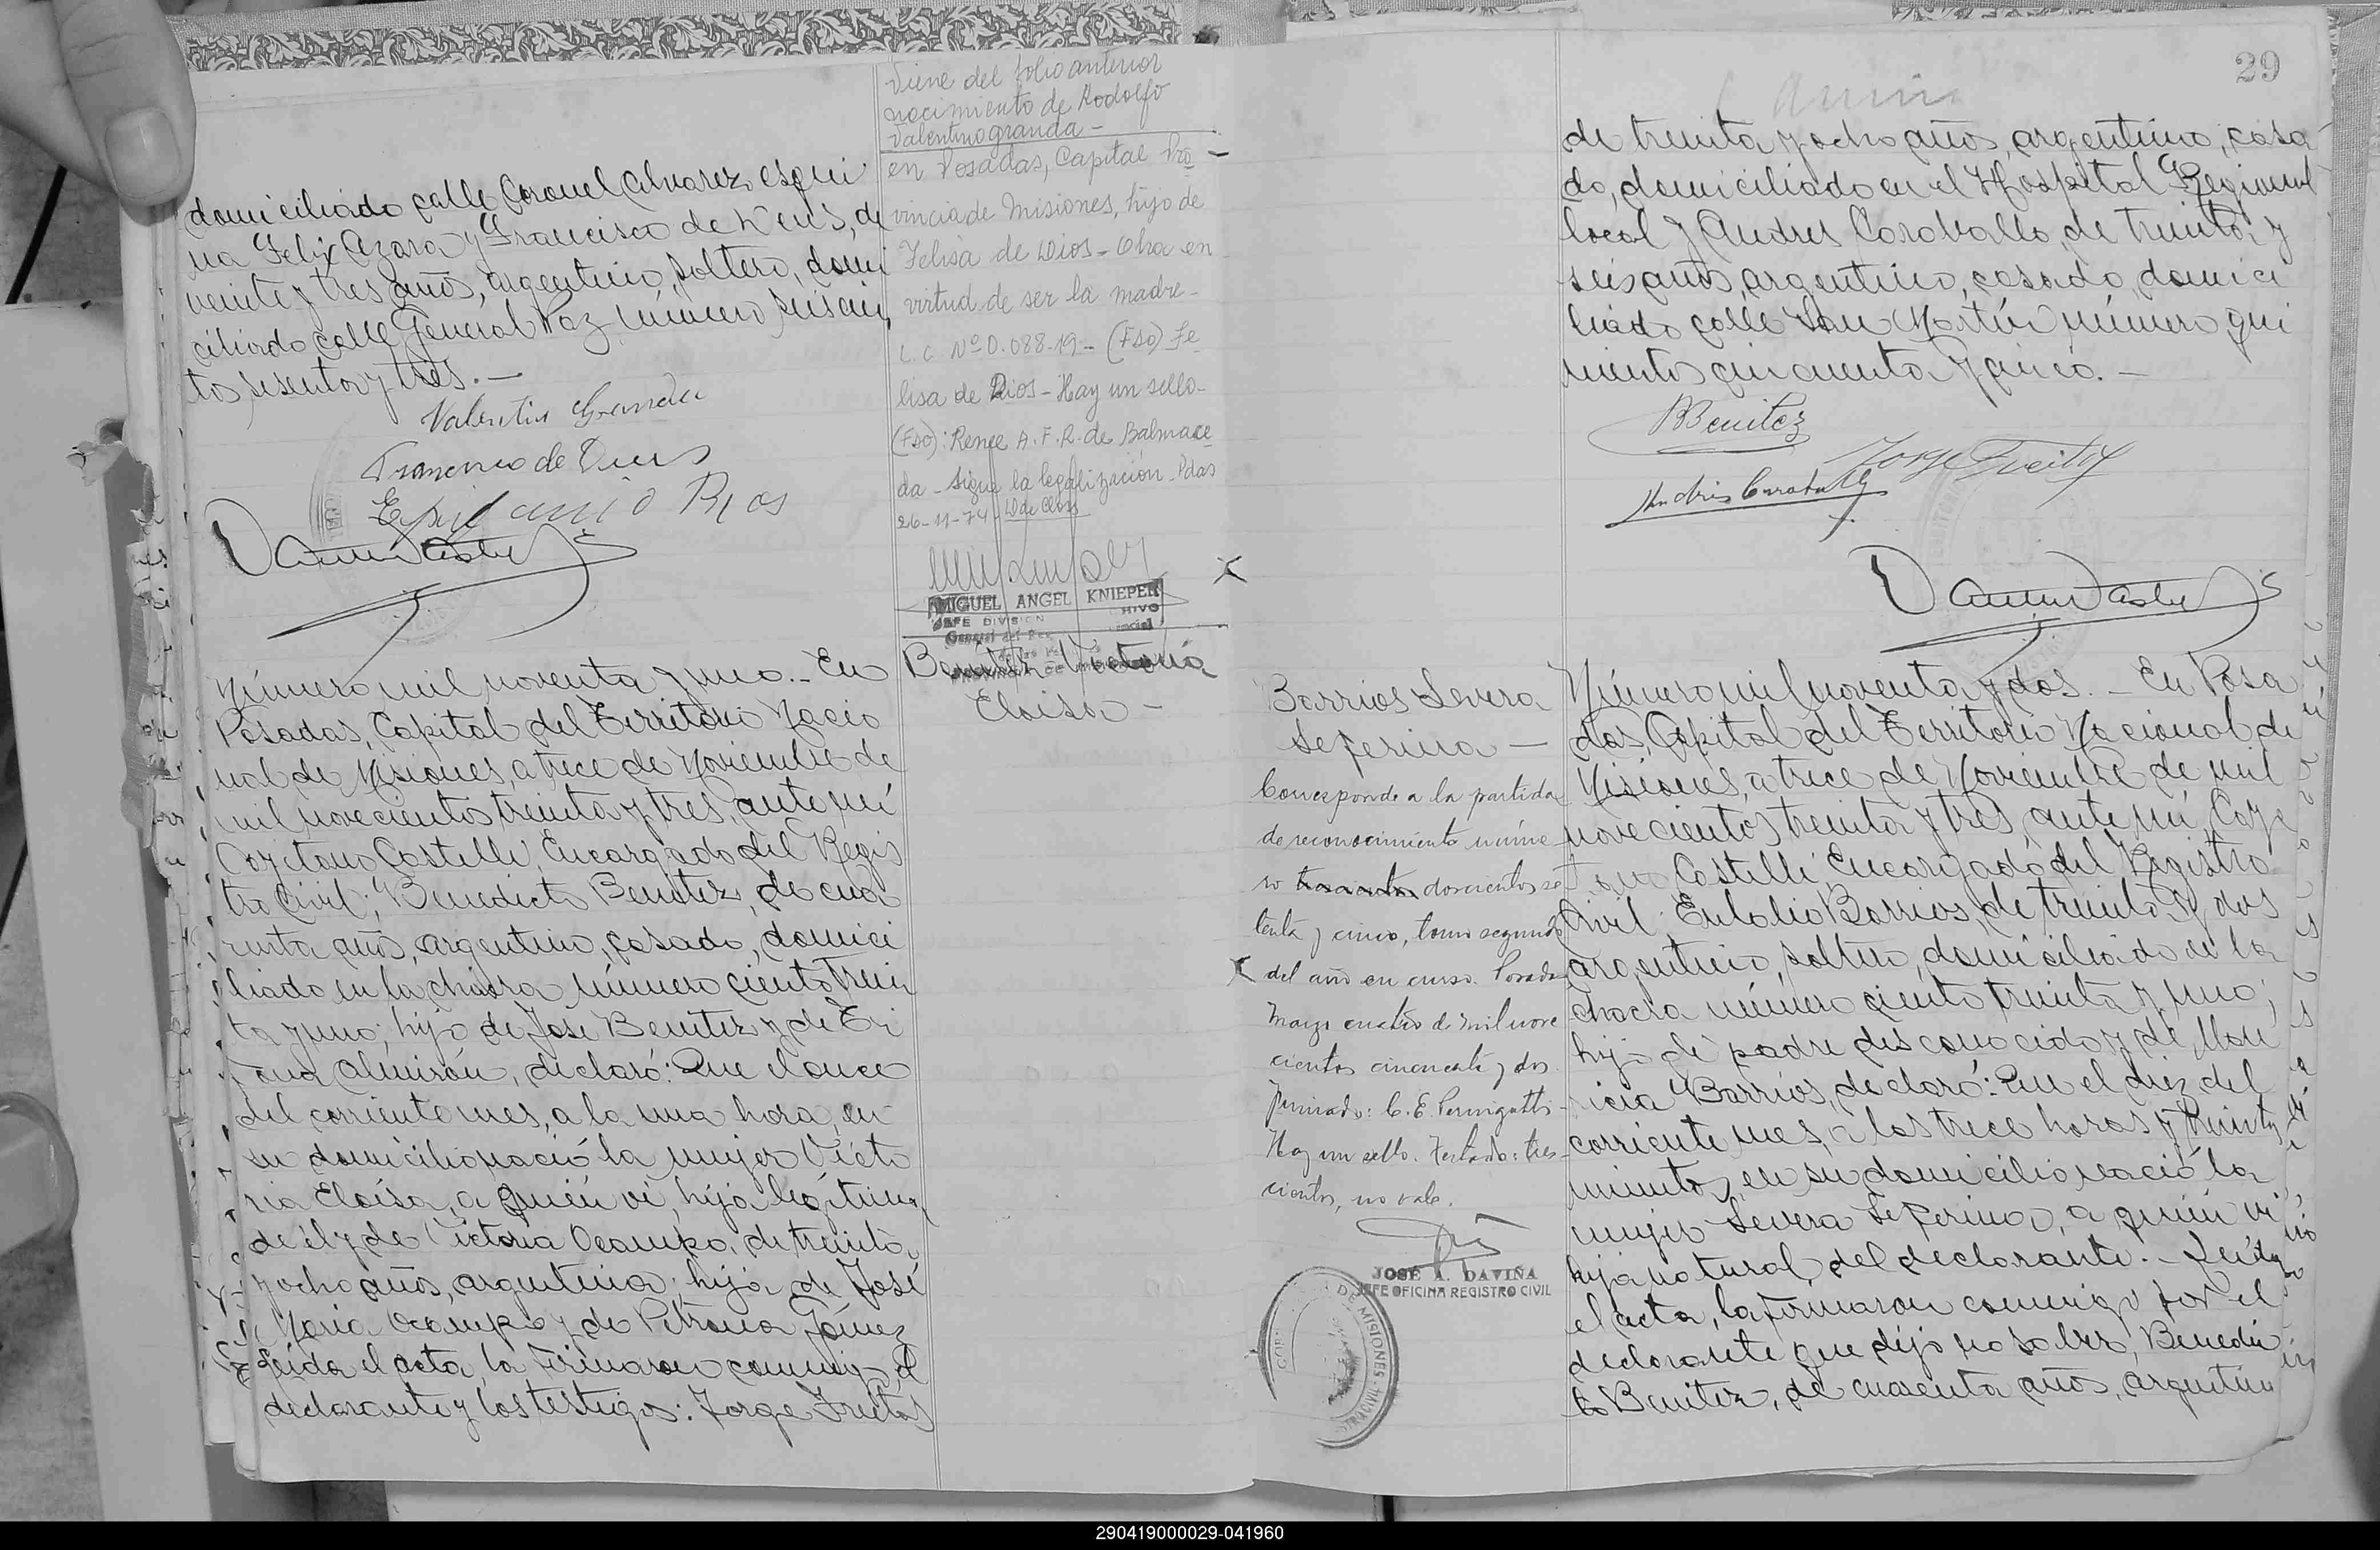 domiciliado calle Coronel Alvarez esqui
na Felix Azara y Francisco de Deus, de
veinte y tres años, argentino, soltero, domi
ciliado calle General Paz número seiscien
tos sesenta y tres.—
Valentin Granda
Francisco de Deus
Epifanio Rios
Viene del folio anterior
nocimiento de Rodolfo
Valentino granda—
en Posadas, Capital Pro
vincia de Misiones, hijo de
Felisa de Dios - Obra en
virtud de ser la madre-
L. C. Nº 0.088.19- (Fdo) Fe
lisa de Dios - Hay un sello-
(Fdo): Renee A. F. R. de Balmace
da - Sigue la legalización - Pdas
26-11-74-
MIGUEL ANGEL KNIEPER
JEFE DIVISION
Número mil noventa y uno.- En
Posadas, Capital del Territorio Nacio
nal de Misiones, a trece de Noviembre de
mil novecientos treinta y tres, ante mí
Cayetano Castelli, Encargado del Regis
tro Civil; Benedicto Benitez, de cua
renta años, argentino, casado, domici
liado en la chacra número ciento trein
ta y uno; hijo de José Benitez y de
Almirón, declaró: Que el once
del corriente mes, a la una hora, en
su domicilio nació la mujer Victo
ria Eloísa, a quién ví, hija legítima
de él y de Victoria Ocampo, de treinta
y ocho años, argentina; hija de José
María Ocampo y de Petrona Gómez
Leída el acta, la firmaron conmigo el
declarante y los testigos: Jorge Freitas
Benitez Victoria
Eloisa -
29
de treinta y ocho años, argentino, casa
do, domiciliado en el Hospital Regional
local y Andres Caraballo, de treinta y
seis años, argentino, casado, domici
liado calle San Martín número qui
nientos cincuenta y cinco.—
BBenitez
Jorge Freitas
Andrés Caraballo
Barrios Severa
Seferina —
Corresponde a la partida
de reconocimiento núme
ro doscientos se
tenta y cinco, tomo segundo
del año en curso. Posadas
Marzo cuatro de mil nove
cientos cincuenta y dos
Firmado: C. E. Pernigotti-
Hay un sello. Testado: tres
cientos, no vale.
JOSÉ A. DAVIÑA
JEFE OFICINA REGISTRO CIVIL
DE MISIONES
Número mil noventa y dos.- En Posa
das, Capital del Territorio Nacional de
Misiones, a trece de Noviembre de mil
novecientos treinta y tres, ante mí, Caye
tano Castelli Encargado del Registro
Civil: Eulalio Barrios, de treinta y dos
argentino, soltero, domiciliado en la
chacra número ciento treinta y uno;
hijo de padre desconocido y de Mau
ricia Barrios, declaró: Que el diez del
corriente mes, a las trece horas y treinta
minutos, en su domicilio nació la
mujer Severa Seferina, a quién ví
hija natural del declarante.- Leída
el acta, la firmaron conmigo por el
declarante que dijo no saber, Benedic
to Benitez, de cuarenta años, argentino
290419000029-041960